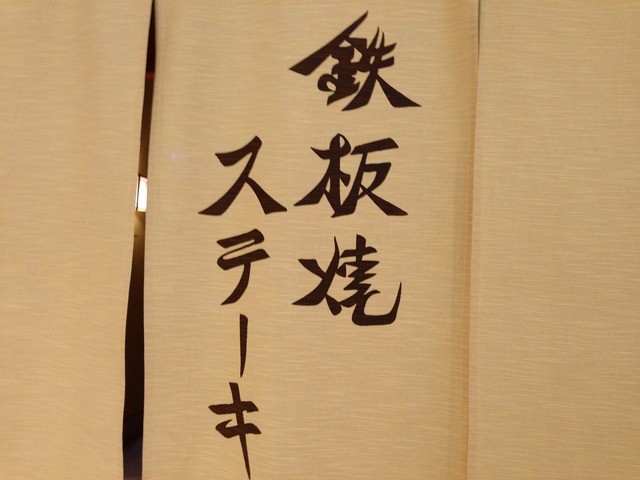 鉄板焼
ステーキ